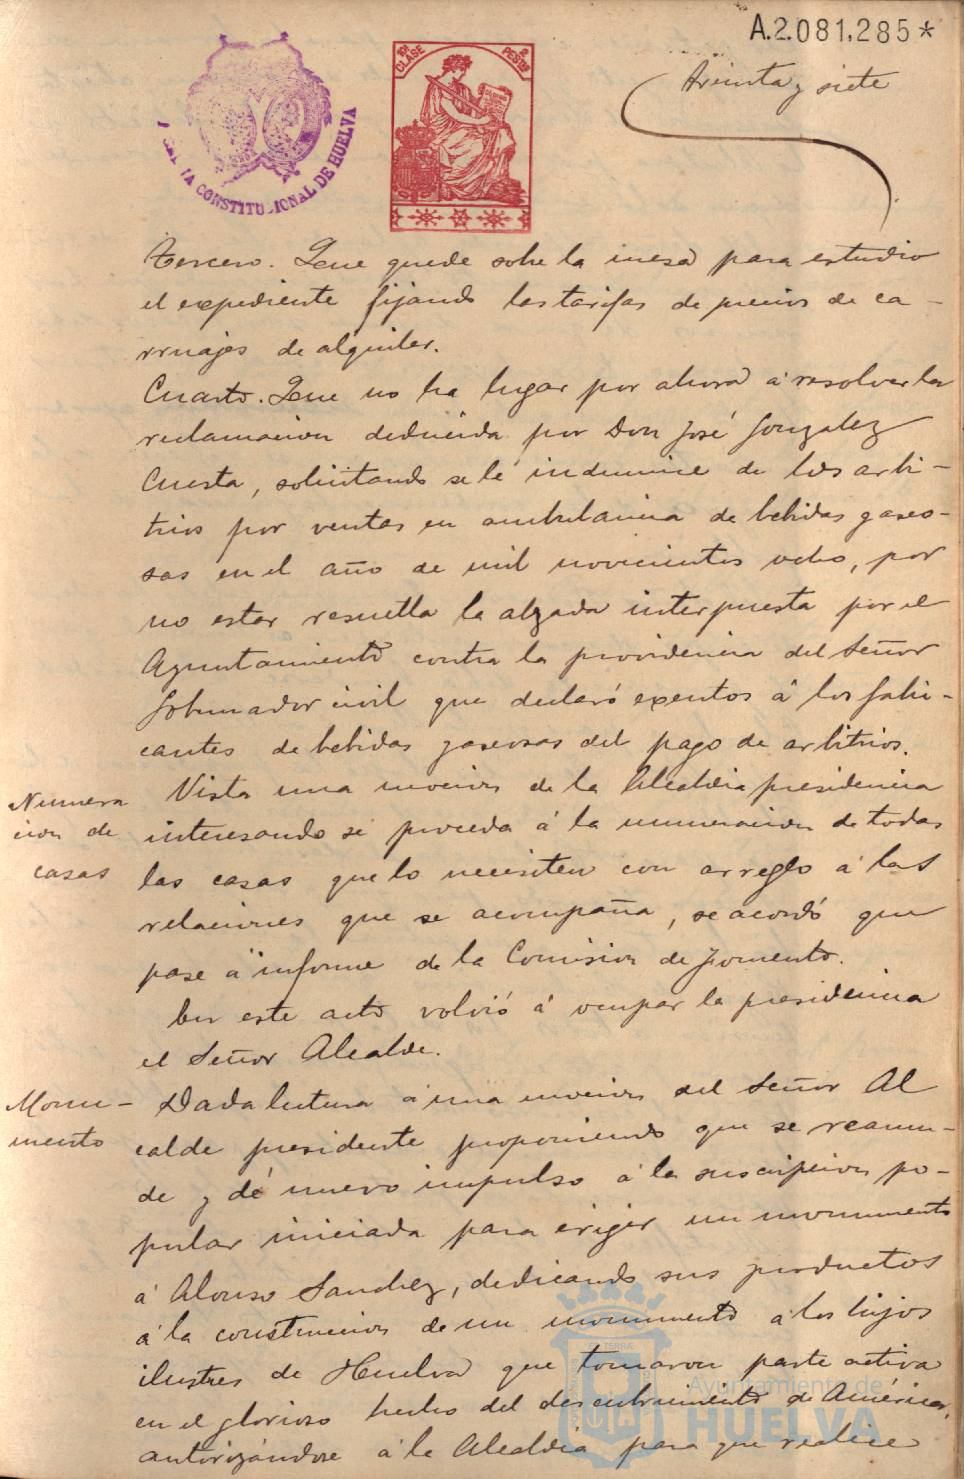 A.2.081,285*
treinta y siete
10ª CLASE
2 PESTAS
CONSTITUCIONAL DE HUELVA
tercero. Que quede sobre la mesa para estudio
el expediente fijando las tarifas de precios de ca-
rruajes de alquiler.
Cuarto. Que no ha lugar por ahora á resolver la
reclamacion deducida por Don José Gonzalez
Cuesta, solicitando se le indemnice de los arbi-
trios por ventas en ambulancia de bebidas gaseo-
sas en el año de mil novecientos ocho, por
no estar resuelta la alzada interpuesta por el
Ayuntamiento contra la providencia del Señor
Gobernador civil que declaró exentos á los fabri-
cantes de bebidas gaseosas del pago de arbitrios.
Numera
cion de
casas
Vista una mocion de la Alcaldia presidencia
interesando se proceda á la numeracion de todas
las casas que lo necesiten con arreglo á las
relaciones que se acompaña, se acordó que
pase á informe de la Comision de Fomento.
En este acto volvió á ocupar la presidencia
el Señor Alcalde.
Monu-
mento
Dada lectura á una mocion del Señor Al
calde presidente proponiendo que se reanu-
de y dé nuevo impulso á la suscripcion po-
pular iniciada para erigir un monumento
á Alonso Sanchez, dedicando sus productos
á la construccion de un monumento á los hijos
ilustres de Huelva que tomaron parte activa
en el glorioso hecho del descubrimiento de América,
autorizándose á la Alcaldía para que realice
Ayuntamiento de
HUELVA